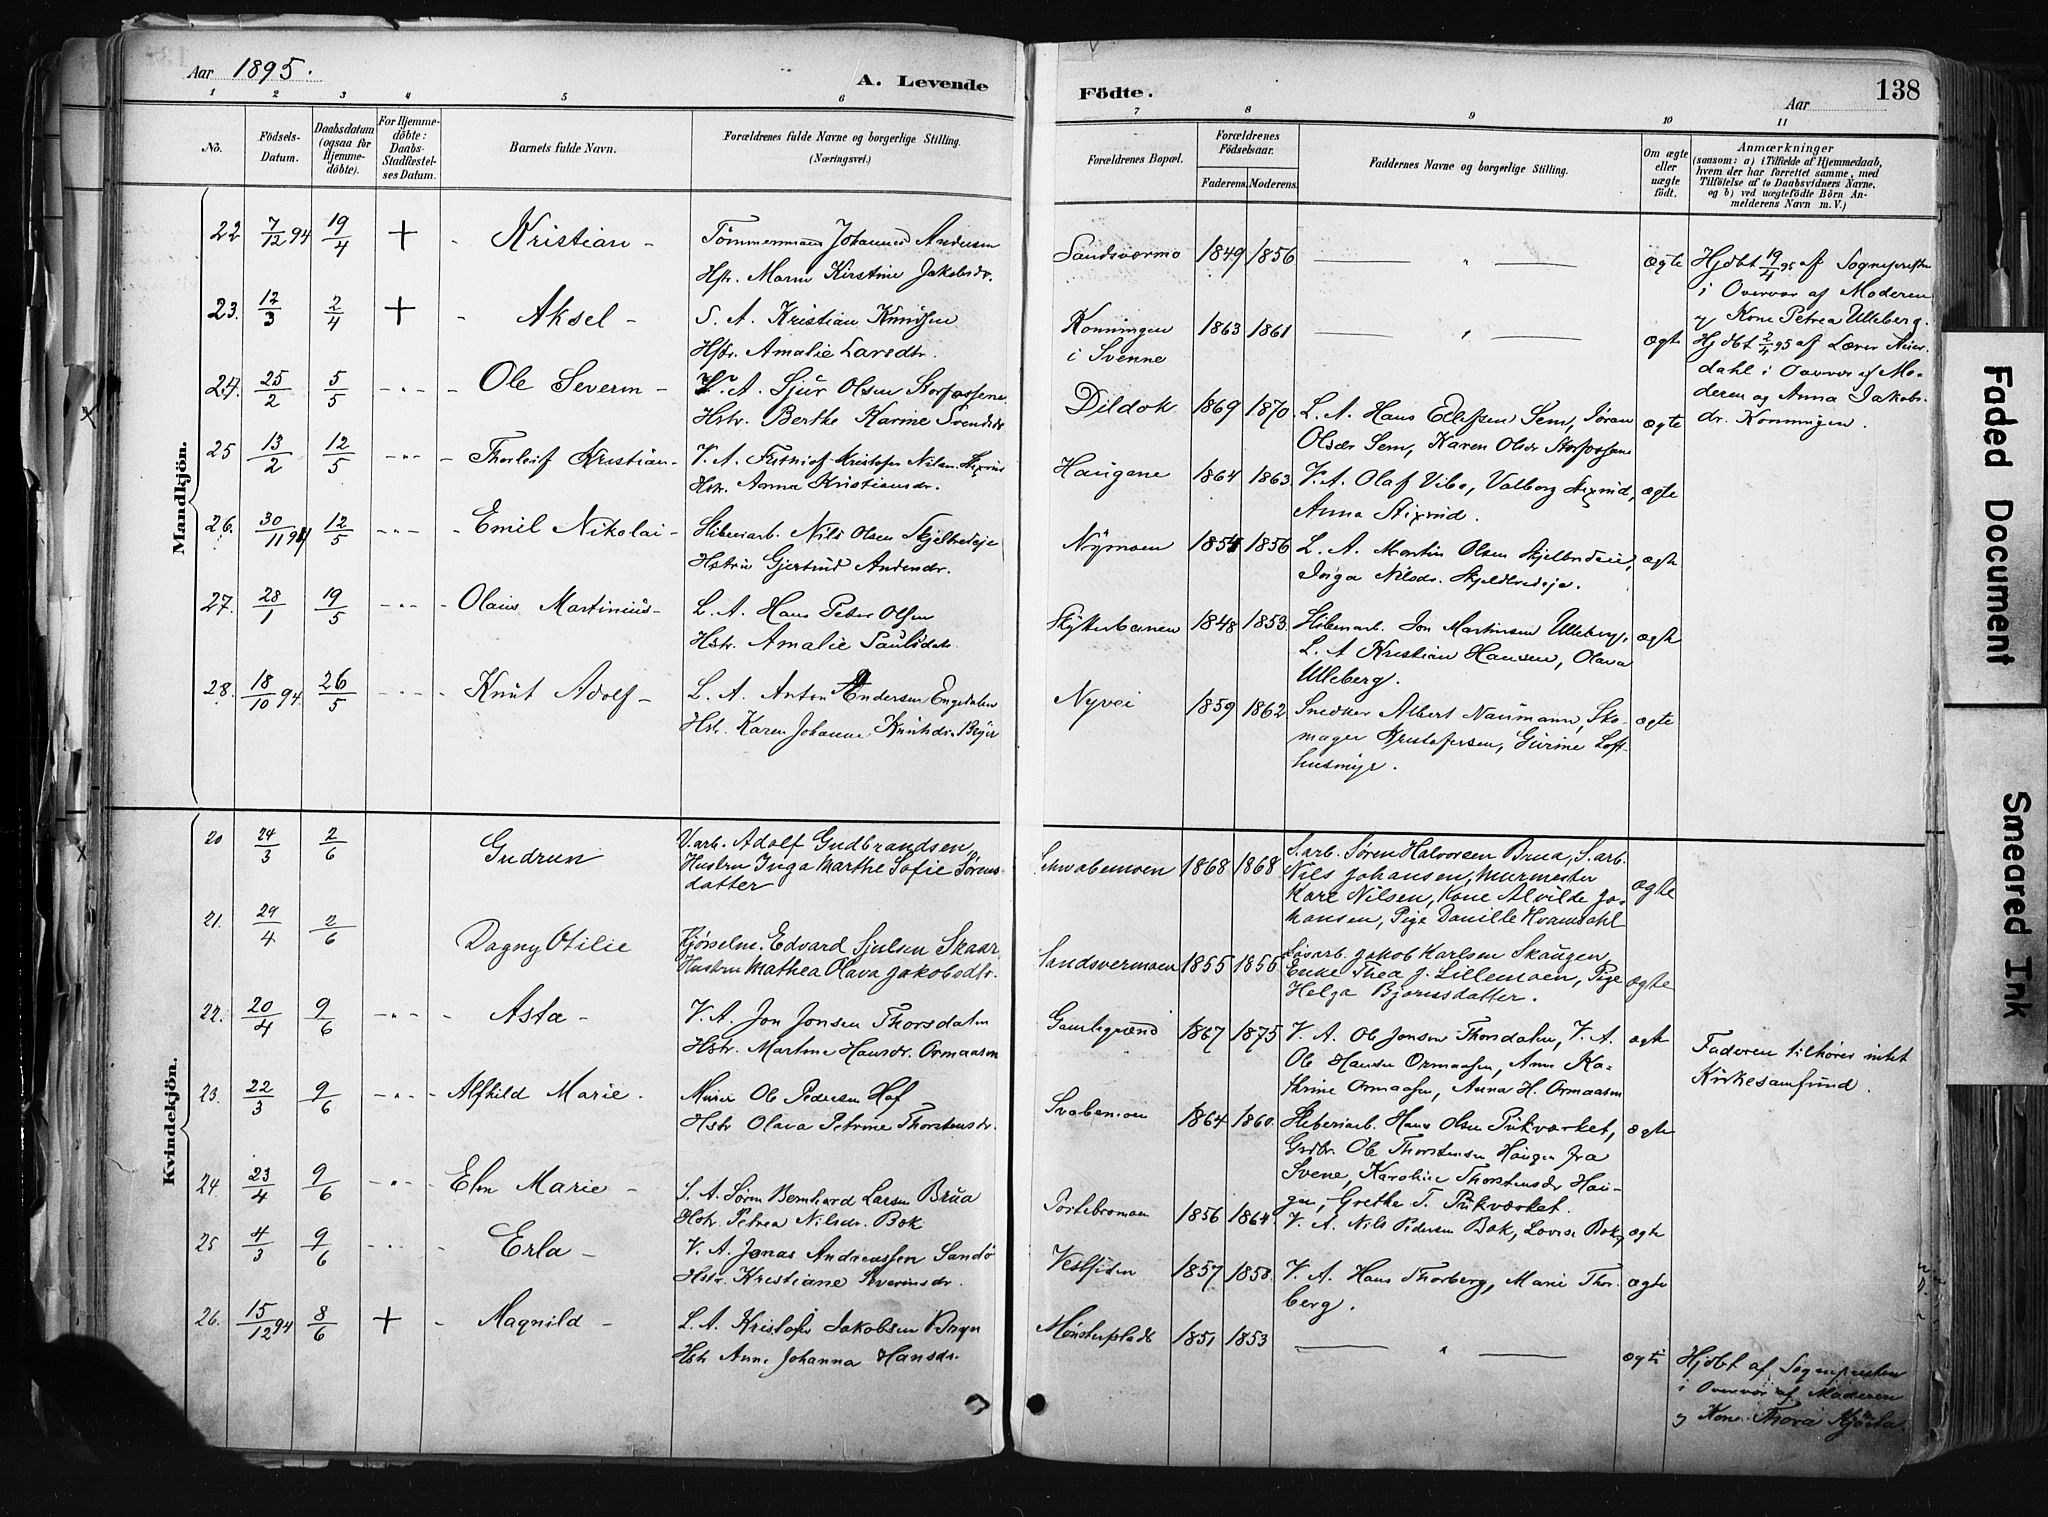 Aar 1895.
A. Levende
Födte.
Aar
138
1 2 3 4 5 6 7 8 9 10 11
No.
Födsels-
Datum.
Daabsdatum
(ogsaa for
Hjemme-
döbte).
For Hjemme-
döbte:
Daabs-
Stadfæstel-
ses Datum.
Barnets fulde Navn.
Forældrenes fulde Navne og borgerlige Stilling.
(Næringsvei.)
Forældrenes Bopæl.
Forældrenes
Födselsaar.
Faderens. Moderens.
Faddernes Navne og borgerlige Stilling.
Om ægte
eller
uægte
födt.
Anmærkninger
(saasom: a) i Tilfælde af Hjemmedaab,
hvem der har forrettet samme, med
Tilföielse af to Daabsvidners Navne,
og b) ved uægtefödte Börn An-
melderens Navn m. V.)
Mandkjön.
22 7/12 94 19/4 + - Kristian - Tømmermand Johannes Andersen
Hstr. Maren Kirstine Jakobsdr.
Sandsværmo 1849 1856 — " — ægte
Hjdbt 19/4 95 af Sognepresten
i Overvær af Moderen
og Kone Petrea Ulleberg.
23. 12/3 2/4 + - Aksel - S. A. Kristian Knudsen
Hstr. Amalie Larsdtr.
Konningen
i Svenne
1863 1861 — " — ægte
Hjdbt 2/4 95 af Lærer
dahl i Overvær af Mo-
deren og Anna Jakobs-
dr. Konningen.
24. 25/2 5/5 - " - - Ole Severin - V. A. Sjur Olsen Storfossene
Hstr. Berthe Karine Svendsdr
Dildok 1869 1870 L. A. Hans Sem, Jøran
Olsdr Sem, Karen Olsdr Storfossene
ægte
25 13/2 12/5 - " - - Thorleif Kristian - V. A. Frithiof Kristofer Nilsen Stixrud
Hstr. Anna Kristiansdr.
Haugene 1864 1863 V. A. Olaf Vibe, Valborg Stixrud,
Anna Stixrud.
ægte
26. 30/11 94 12/5 - " - - Emil Nikolai - Sliberiarb. Nils Olsen Skjelbredeje
Hstru Gjertrud Andersdr.
Nymoen 1854 1856 L. A. Martin Olsen Skjelbredeie,
Inga Nilsdr. Skjelbredeje.
ægte
27. 28/1 19/5 - " - - Olaus Martinius - L. A. Hans Peter Olsen
Hstr. Amalie Paulsdatr.
Skytterbanen 1848 1853. Sliberiarb. Jon Martinsen Ulleberg,
L. A Kristian Hansen, Olava
Ulleberg.
ægte
28. 18/10 94. 26/5 - " - - Knut Adolf - L. A. Anton Andersen Engedalen
Hstr. Karen Johanne Knutsdr.
Nyvei 1859 1862 Snedker Albert Naumann, Sko-
mager Kristofersen, Gurine Loft-
husmyr.
ægte
Kvindekjön.
20 24/3 2/6 Gudrun V.arb. Adolf Gudbrandsen,
Hustru Inga Marthe Sofie Sørens-
datter
Schwabemoen 1868 1868 S.arb. Søren Halvorsen Brua, S.arb.
Nils Johansen, Murmester
Karl Nilsen, Kone Alvilde Jo-
hansen, Pige Danille Hvamdahl
ægte
21. 29/4 2/6 Dagny Otilie Edvard Sjulsen Skaar
Hustru Mathea Olava Jakobsdtr.
Sandsvermoen 1855 1856 Jakob Karlsen Skaugen,
Enke Thea J. Lillemoen, Pige
Helga Bjørnsdatter.
ægte
22. 20/4 9/6 - " - - Asta - V. A. Jon Jonsen Thorsdalen
Hstr. Martine Hansdr. Ormaasen
Gamlegrænd 1867 1875 V. A. Ole Jonsen Thorsdalen, V. A.
Ole Hansen Ormaasen, Anne Ka-
thrine Ormaasen, Anna H. Ormaasen
ægte
Faderen tilhører intet
Kirkesamfund.
23. 22/3 9/6 - " - - Alfhild Marie. Murer Ole Pedersen Hof
Hstr Olava Petrine Thorstensdr.
Svabemoen 1864 1860. Sliberiarb. Hans Olsen Pukværket,
Grdbr. Ole Thorstensen Haugen fra
Svene, Karoline Thorstensdr Hau-
gen, Grethe T. Pukværket.
ægte
24. 23/4 9/6 - " - - Elen Marie - S. A. Søren Bernhard Larsen Brua
Hstr. Petrea Nilsdr. Bok
1856 1864. V. A. Nils Pedersen Bok, Lovise Bok,
ægte
25 4/3 9/6 - " - - Erla - V. A. Jonas Andreassen Sandø
Hstr. Kristiane Severinsdr.
Vestsiden 1857 1858. V. A. Hans Thorberg, Marie Thor-
berg.
ægte
26. 15/12 94 8/6 + - Magnild - L. A. Kristofer Jakobsen Bryn
Hstr Anne Johanna Hansdr.
Mønsterplads 1851 1853 — " — ægte
Hjdbt af Sognepresten
i Overvær af Moderen
og Kone Thora
Faded Document
Smeared Ink